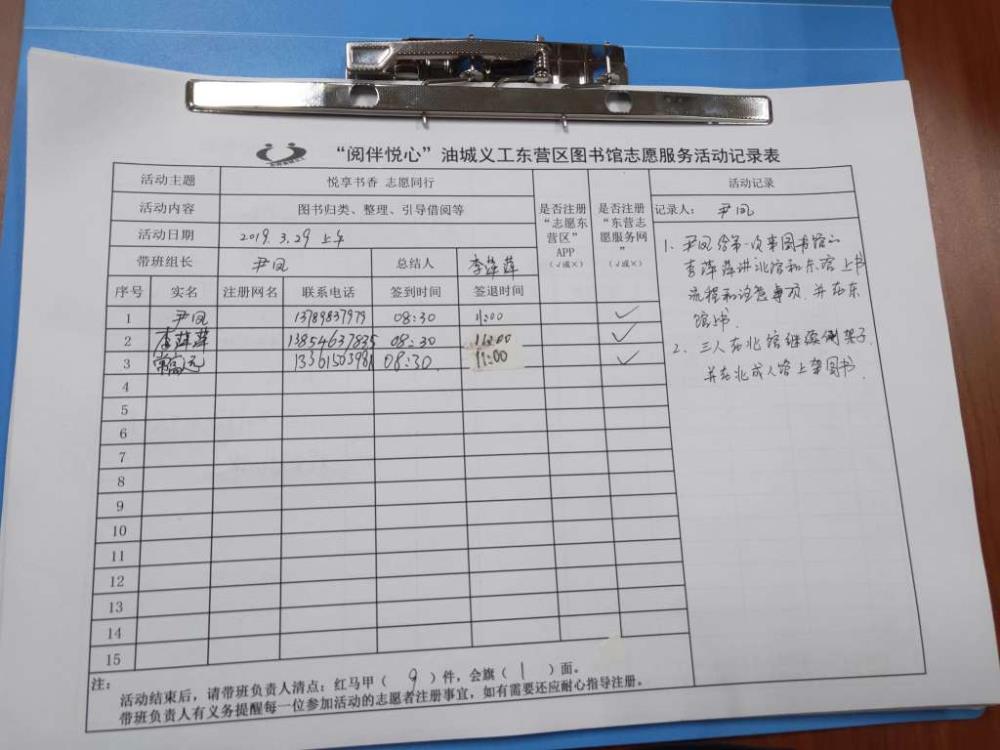 “阅伴悦心”油城义工东营区图书馆志愿服务活动记录表
活动主题 悦享书香 志愿同行
活动内容 图书归类、整理、引导借阅等
活动日期 2019.3.29 上午
带班组长 尹凤 总结人 李萍萍
序号 实名 注册网名 联系电话 签到时间 签退时间
是否注册
“志愿东
营区”
APP
(√或×)
是否注册
“东营志
愿服务网
”
(√或×)
1 尹凤 13789837979 08:30 11:00 ✓
2 李萍萍 13854637835 08:30 11:00 ✓
3 08:30 11:00 ✓
4
5
6
7
8
9
10
11
12
13
14
15
活动记录
记录人: 尹凤
1. 尹凤给第一次来图书馆的
李萍萍讲北馆和东馆上书
流程和注意事项,并在东
馆上书.
2. 三人在北馆继续倒架子,
并在北成人馆上架图书.
注:
活动结束后,请带班负责人清点:红马甲( 9 )件,会旗( 1 )面。
带班负责人有义务提醒每一位参加活动的志愿者注册事宜,如有需要还应耐心指导注册。